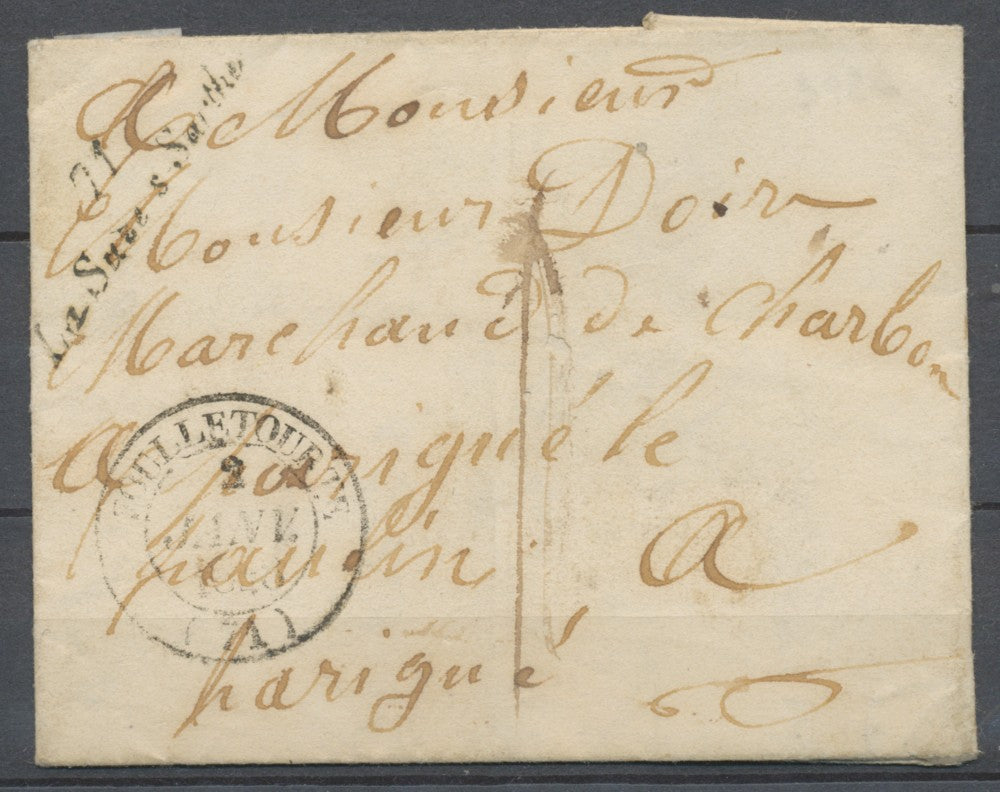 A Monsieur
Monsieur Doir
Marchand de Charbon
a parigné le
paulin A
parigné
71
La Suze s. Sarthe
FOULLETOURTE
2
JANV.
(71)